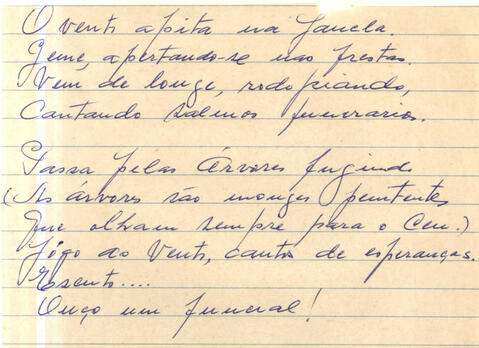 O vento apita na janela.
Geme, apertando-se nas frestas.
Vem de longe, rodopiando,
Cantando salmos funerários.
Passa pelas Árvores fugindo
(As árvores são monges penitentes
Que olham sempre para o Ceu.)
Jôgo ao Vento, cantos de esperanças.
Escuto....
Ouço um funeral!